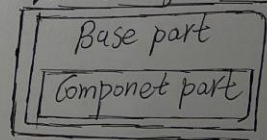 Base part
Componet part